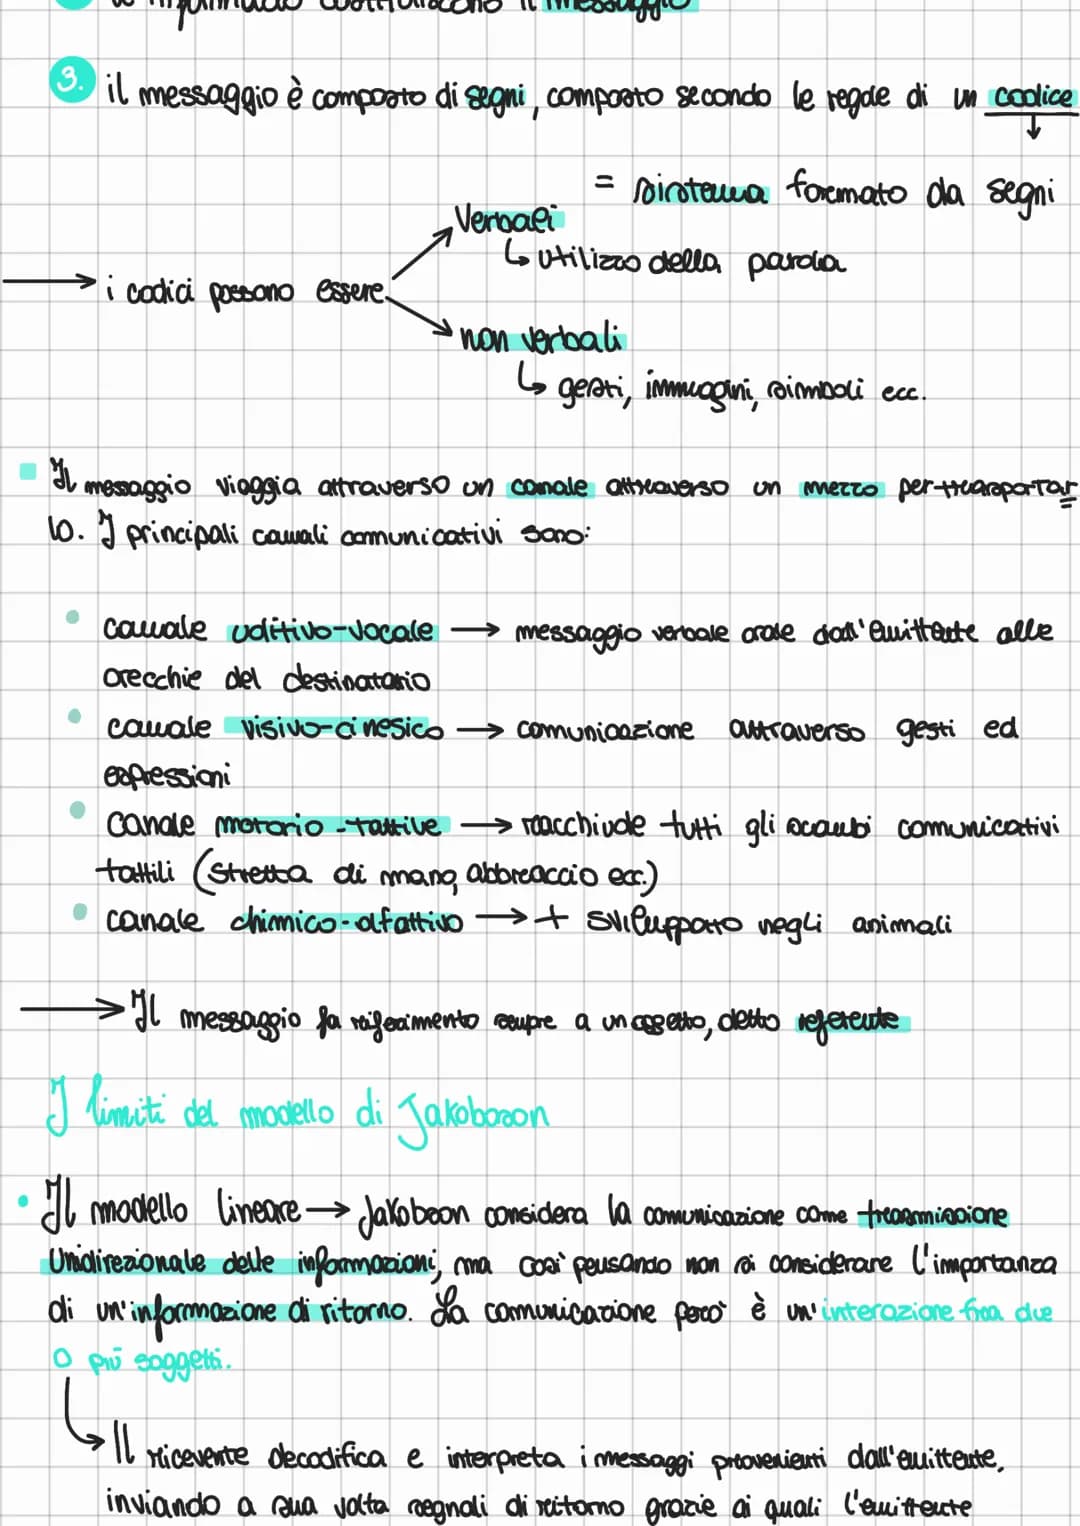 le informazio costituiscono il messaggio
3. il messaggio è composto di segni, composto secondo le regole di un codice
= sistema formato da segni
Verbali
↳ utilizzo della parola
→ i codici possono essere
non verbali
↳ gesti, immagini, simboli ecc.
Il messaggio viaggia attraverso un canale attraverso un mezzo per trasportar
lo. I principali canali comunicativi sono:
• canale uditivo-vocale → messaggio verbale orale dall'emittente alle
orecchie del destinatario
• canale visivo-cinesico → comunicazione attraverso gesti ed
espressioni
• canale motorio-tattile → racchiude tutti gli scambi comunicativi
tattili (stretta di mano, abbraccio ecc.)
• canale chimico-olfattivo → + sviluppato negli animali
→ Il messaggio fa riferimento sempre a un oggetto, detto referente
I limiti del modello di Jakobson
• Il modello lineare → Jakobson considera la comunicazione come trasmissione
Unidirezionale delle informazioni, ma così pensando non si considerare l'importanza
di un'informazione di ritorno. La comunicazione però è un'interazione fra due
o più soggetti.
↳ Il ricevente decodifica e interpreta i messaggi provenienti dall'emittente,
inviando a sua volta segnali di ritorno grazie ai quali l'emittente